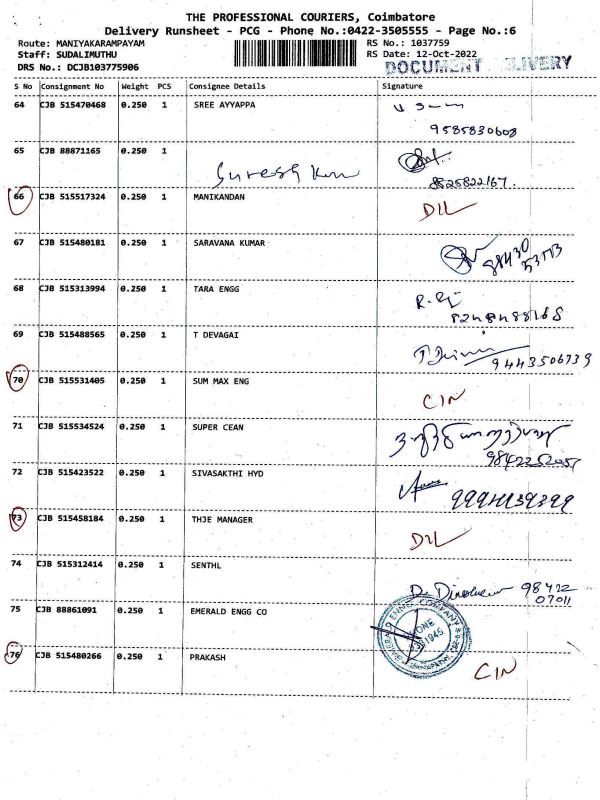 THE PROFESSIONAL COURIERS, Coimbatore
Delivery Runsheet - PCG - Phone No.:0422-3505555 - Page No.:6
Route: MANIYAKARAMPAYAM RS No.: 1037759
Staff: SUDALIMUTHU RS Date: 12-Oct-2022
DRS No.: DCJB103775906 DOCUMENT DELIVERY
S No Consignment No Weight PCS Consignee Details Signature
64 CJB 515470468 0.250 1 SREE AYYAPPA
9585830608
65 CJB 88871165 0.250 1
8825822167
66 CJB 515517324 0.250 1 MANIKANDAN D2L
67 CJB 515480181 0.250 1 SARAVANA KUMAR
68 CJB 515313994 0.250 1 TARA ENGG
69 CJB 515488565 0.250 1 T DEVAGAI
9443506739
70 CJB 515531405 0.250 1 SUM MAX ENG CIN
71 CJB 515534524 0.250 1 SUPER CEAN
72 CJB 515423522 0.250 1 SIVASAKTHI HYD
73 CJB 515458184 0.250 1 THJE MANAGER D2L
74 CJB 515312414 0.250 1 SENTHL
98422
07011
75 CJB 88861091 0.250 1 EMERALD ENGG CO
76 CJB 515480266 0.250 1 PRAKASH CIN